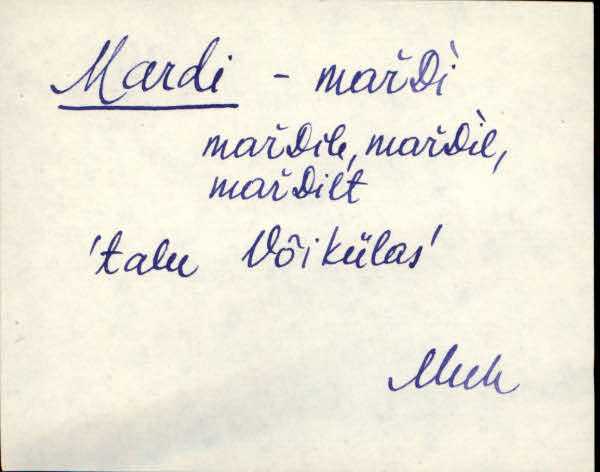 Mardi - mařDì
mařDile, mařDìl,
mařDilt
'talu Võikülas'
Muh